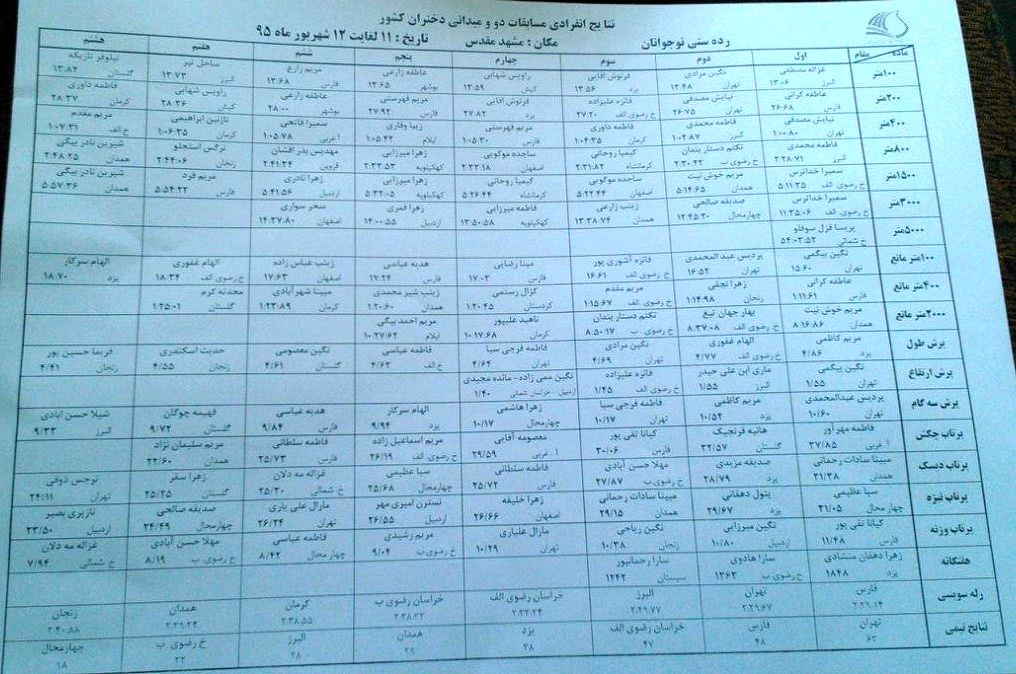 نتایج انفرادی مسابقات دو و میدانی دختران کشور
رده سنی نوجوانان مکان : مشهد مقدس تاریخ : ۱۱ لغایت ۱۲ شهریور ماه ۹۵
ماده مقام اول دوم سوم چهارم پنجم ششم هفتم هشتم
۱۰۰متر غزاله مصطفی نگین مرادی فرنوش آقایی راویس شهابی عاطفه زارعی مریم زارع ساحل نیر نیلوفر تازیکه
البرز ۱۳/۰۶ تهران ۱۳/۴۸ یزد ۱۳/۵۶ کیش ۱۳/۵۹ بوشهر ۱۳/۶۵ فارس ۱۳/۶۸ البرز ۱۳/۷۳ گلستان ۱۳/۸۲
۲۰۰متر عاطفه کرانی نیایش مصدقی فائزه علیزاده فرنوش آقایی مریم فهرستی عاطفه زارعی راویس شهابی فاطمه داوری
فارس ۲۶/۶۸ تهران ۲۶/۷۵ خ رضوی الف ۲۷/۲۰ یزد ۲۷/۸۲ فارس ۲۷/۹۲ بوشهر ۲۸/۰۰ کیش ۲۸/۳۶ کرمان ۲۸/۳۷
۴۰۰متر نیایش مصدقی فاطمه محمدی فاطمه داوری مریم فهرستی زیبا وقاری سمیرا فاتحی نازنین ابراهیمی مریم مقدم
تهران ۱:۰۰/۸۰ البرز ۱:۰۲/۸۷ کرمان ۱:۰۴/۳۵ فارس ۱:۰۵/۳۰ ایلام ۱:۰۵/۴۲ آ غربی ۱:۰۵/۷۸ کرمان ۱:۰۶/۳۵ خ الف ۱:۰۷/۳۱
۸۰۰متر فاطمه محمدی تکتم دستار بندان کیمیا روحانی ساجده موکویی زهرا میرزایی مهدیس بدر افشان نرگس استجلو شیرین نادر بیگی
البرز ۲:۲۸/۷۱ خ رضوی ب ۲:۳۰/۴۲ کرمانشاه ۲:۳۱/۸۲ اصفهان ۲:۳۲/۱۸ کهکیلویه ۲:۳۳/۵۳ قزوین ۲:۴۱/۳۴ زنجان ۲:۴۴/۰۶ همدان ۲:۴۸/۲۵
۱۵۰۰متر سمیرا خداترس مریم خوش نیت ساجده موکویی کیمیا روحانی زهرا میرزایی زهرا نادری مریم فرد شیرین نادر بیگی
خ رضوی الف ۵:۱۱/۳۵ همدان ۵:۱۴/۶۵ اصفهان ۵:۲۲/۴۴ کرمانشاه ۵:۲۶/۴۴ کهکیلویه ۵:۳۲/۰۵ اردبیل ۵:۴۱/۵۶ فارس ۵:۵۴/۲۲ همدان ۵:۵۷/۳۶
۳۰۰۰متر سمیرا خداترس صدیقه صالحی زینب زارعی فاطمه میرزایی زهرا قمری سحر سواری
خ رضوی الف ۱۱:۳۵/۰۶ چهارمحال ۱۲:۴۵/۲۰ همدان ۱۳:۲۸/۷۴ کهکیلویه ۱۳:۵۰/۵۸ اردبیل ۱۴:۰۰/۵۵ اصفهان ۱۴:۳۷/۸۰
۵۰۰۰متر پریسا قزل سوفلو
خ شمالی ۵۴:۰۳/۵۲
۱۰۰متر مانع نگین بیگمی پردیس عبد المحمدی فائزه آشوری پور مینا رضایی هدیه عباسی زینب عباس زاده الهام غفوری الهام سرکار
تهران ۱۵/۶۰ تهران ۱۶/۵۲ خ رضوی الف ۱۶/۶۱ فارس ۱۷/۰۲ فارس ۱۷/۲۴ اصفهان ۱۷/۶۳ خ رضوی الف ۱۸/۳۴ یزد ۱۸/۷۰
۴۰۰متر مانع عاطفه کرانی زهرا نجفی مریم مقدم کژال رستمی زینب شیر محمدی مبینا شهرآبادی محدثه کرم
فارس ۱:۱۱/۶۱ زنجان ۱:۱۴/۹۸ خ رضوی الف ۱:۱۵/۶۷ کردستان ۱:۲۰/۴۵ همدان ۱:۲۰/۶۰ کرمان ۱:۲۳/۸۹ گلستان ۱:۲۵/۰۱
۲۰۰۰متر مانع مریم خوش نیت بهار جهان تیغ تکتم دستار بندان ناهید علیپور مریم احمد بیگی
همدان ۸:۱۶/۸۶ خ رضوی الف ۸:۳۷/۰۸ خ رضوی ب ۸:۵۰/۱۷ کرمان ۱۰:۱۷/۶۸ ایلام ۱۰:۲۷/۶۲
پرش طول مریم کاظمی الهام غفوری نگین مرادی فاطمه فرجی سبا فاطمه عباسی نگین معصومی حدیث اسکندری فریما حسین پور
یزد ۴/۸۶ خ رضوی الف ۴/۷۷ تهران ۴/۶۹ تهران ۴/۶۴ خ الف ۴/۶۳ گلستان ۴/۶۱ زنجان ۴/۵۵ زنجان ۴/۴۱
پرش ارتفاع نگین بیگمی ماری ابن علی حیدر فائزه علیزاده نگین ممی زاده - مائده مجیدی
تهران ۱/۵۵ البرز ۱/۵۵ خ رضوی الف ۱/۴۵ اردبیل خراسان شمالی ۱/۴۰
پرش سه گام پردیس عبدالمحمدی مریم کاظمی فاطمه فرجی سبا زهرا هاشمی الهام سرکار هدیه عباسی فهیمه چوگان شیلا حسن آبادی
تهران ۱۰/۶۰ یزد ۱۰/۵۲ تهران ۱۰/۱۷ چهارمحال ۱۰/۱۷ یزد ۹/۹۴ فارس ۹/۸۴ گلستان ۹/۷۲ البرز ۹/۳۳
پرتاب چکش فاطمه مهرآور هانیه فرنجیک کیانا تقی پور معصومه آقایی مریم اسماعیل زاده فاطمه سلطانی مریم سلیمان نژاد
آ غربی ۳۷/۸۵ گلستان ۳۲/۵۷ فارس ۳۰/۰۶ آ غربی ۲۹/۵۹ خ رضوی الف ۲۶/۱۹ فارس ۲۵/۷۳ همدان ۲۲/۶۰
پرتاب دیسک مبینا سادات رحمانی صدیقه مزیدی مهلا حسن آبادی فاطمه سلطانی سبا عظیمی غزاله مه دلان زهرا سفر نرجس ذوقی
همدان ۳۱/۳۸ یزد ۲۸/۷۹ خ رضوی ب ۲۷/۸۷ فارس ۲۵/۷۲ چهارمحال ۲۵/۶۸ خ شمالی ۲۵/۳۰ گلستان ۲۵/۲۵ تهران ۲۴/۱۱
پرتاب نیزه سبا عظیمی بتول دهقانی مبینا سادات رحمانی زهرا خلیفه نسترن امیری مهر مارال علی یاری صدیقه صالحی نازپری بصیر
چهارمحال ۳۱/۰۵ یزد ۲۹/۶۷ همدان ۲۹/۱۵ اصفهان ۲۶/۶۶ اردبیل ۲۶/۵۵ تهران ۲۶/۲۴ چهارمحال ۲۴/۴۹ اردبیل ۲۳/۵۰
پرتاب وزنه کیانا تقی پور نگین میرزایی نگین ریاحی مارال علیاری مریم رشیدی فاطمه عباسی مهلا حسن آبادی غزاله مه دلان
فارس ۱۱/۴۸ اردبیل ۱۰/۸۰ زنجان ۱۰/۳۸ تهران ۱۰/۲۹ خ رضوی ب ۹/۰۴ چهار محال ۸/۴۲ خ رضوی ب ۸/۱۹ خ شمالی ۷/۹۴
هفتگانه زهرا دهقان منشادی سارا هادوی سارا رحمانپور
یزد ۱۸۴۸ خ رضوی ب ۱۳۶۳ سیستان ۱۲۴۲
رله سوئسی فارس تهران البرز خراسان رضوی الف خراسان رضوی ب کرمان همدان زنجان
۲:۲۹/۱۴ ۲:۲۹/۶۷ ۲:۲۹/۷۷ ۲:۳۳/۲۴ ۲:۳۸/۳۲ ۲:۳۸/۵۵ ۲:۳۹/۲۴ ۲:۴۰/۸۸
نتایج تیمی تهران فارس خراسان رضوی الف یزد همدان البرز خ رضوی ب چهارمحال
۶۳ ۴۸ ۴۷ ۳۸ ۲۹ ۲۸ ۲۲ ۱۸